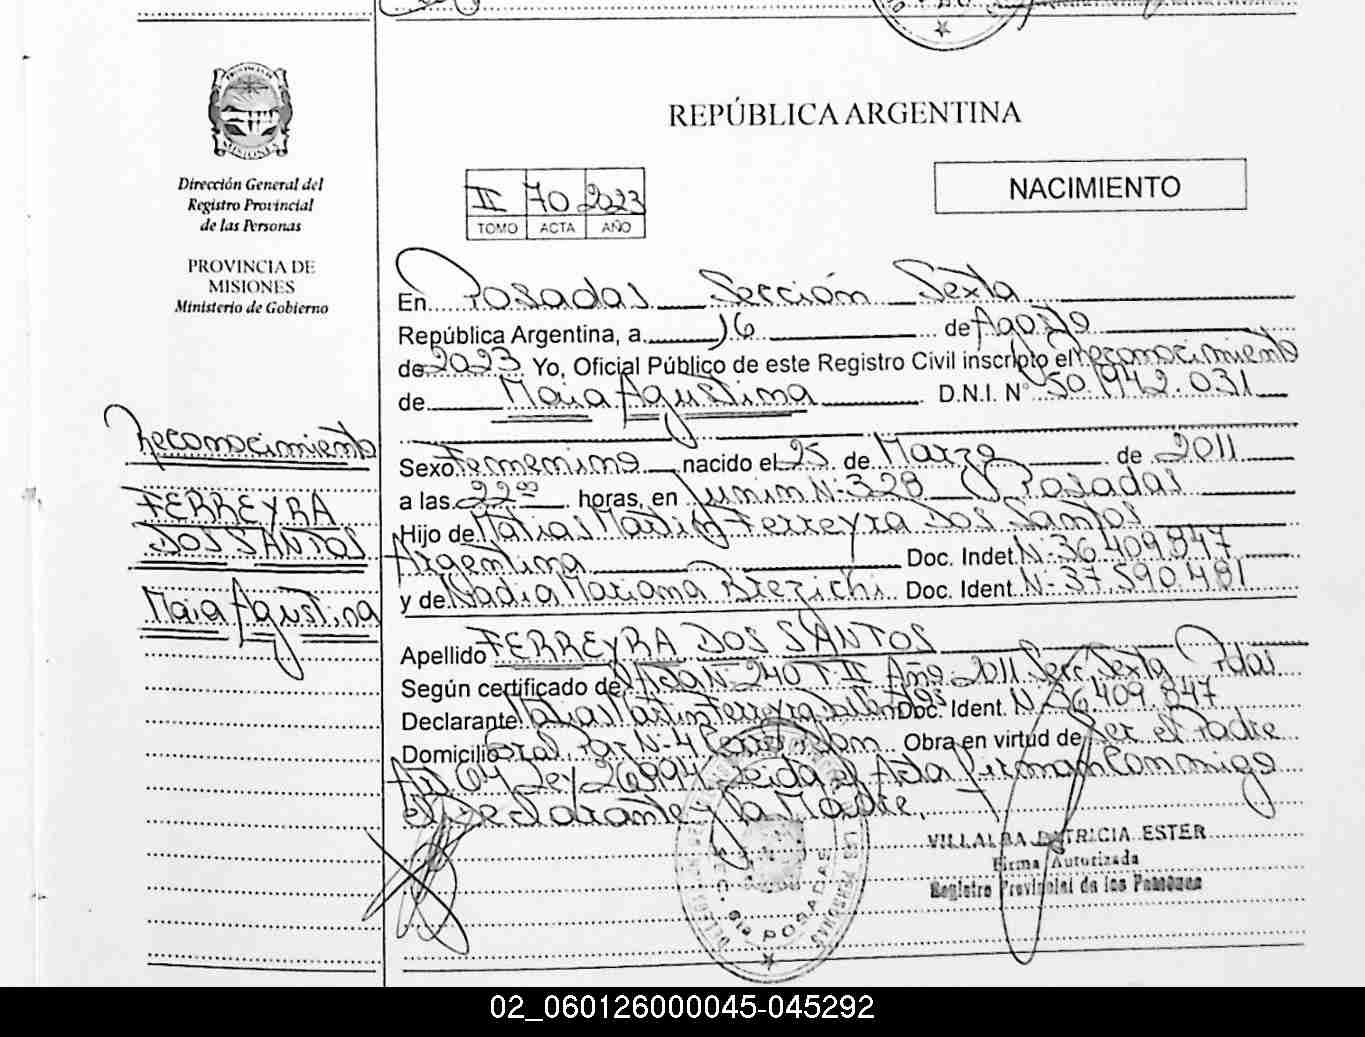 REPÚBLICA ARGENTINA
II 70 2023
TOMO ACTA AÑO
NACIMIENTO
PROVINCIA MISIONES
Dirección General del
Registro Provincial
de las Personas
PROVINCIA DE
MISIONES
Ministerio de Gobierno
Reconocimiento
FERREYRA
DOS SANTOS
Maia Agustina
En Posadas Sección Sexta
República Argentina, a 16 de Agosto
de 2023. Yo, Oficial Público de este Registro Civil inscripto el Reconocimiento
de Maia Agustina D.N.I. N° 50.942.031
Sexo Femenino nacido el 25 de Marzo de 2011
a las 22 00 horas, en Junin N° 328 Posadas
Hijo de Matias Martin Ferreyra Dos Santos
Argentina Doc. Indet. N° 36.409.847
y de Nadia Mariana Brezichi Doc. Ident. N° 37.590.481
Apellido FERREYRA DOS SANTOS
Según certificado de Acta N° 240 T° II Año 2011 Secc. Sexta Pdas
Declarante Matias Martin Ferreyra Dos Santos Doc. Ident. N° 36.409.847
Domicilio Gral. Paz N° 4 Obra en virtud de Ser el Padre
Art 64 Ley 26994 Leida el Acta firman Conmigo
el Declarante y la Madre.
VILLALBA PATRICIA ESTER
Firma Autorizada
Registro Provincial de las Personas
SECC. 6ta POSADAS
02_060126000045-045292